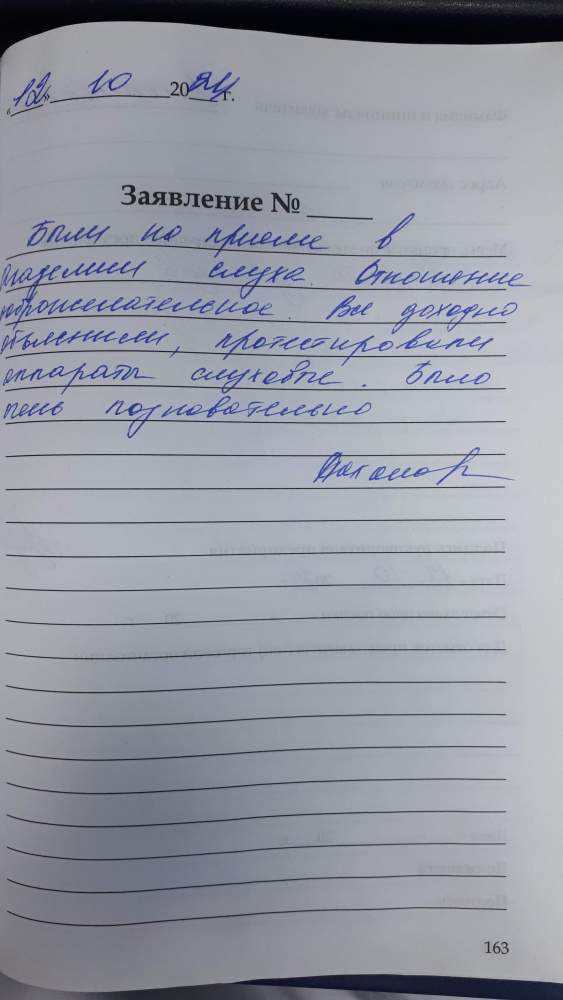 «12» 10 2024 г.
Заявление № ____
Были на приеме в
Академии слуха. Отношение
доброжелательное. Все доходно
объяснили, протестировали
аппараты слуховые. Было
очень познавательно
163